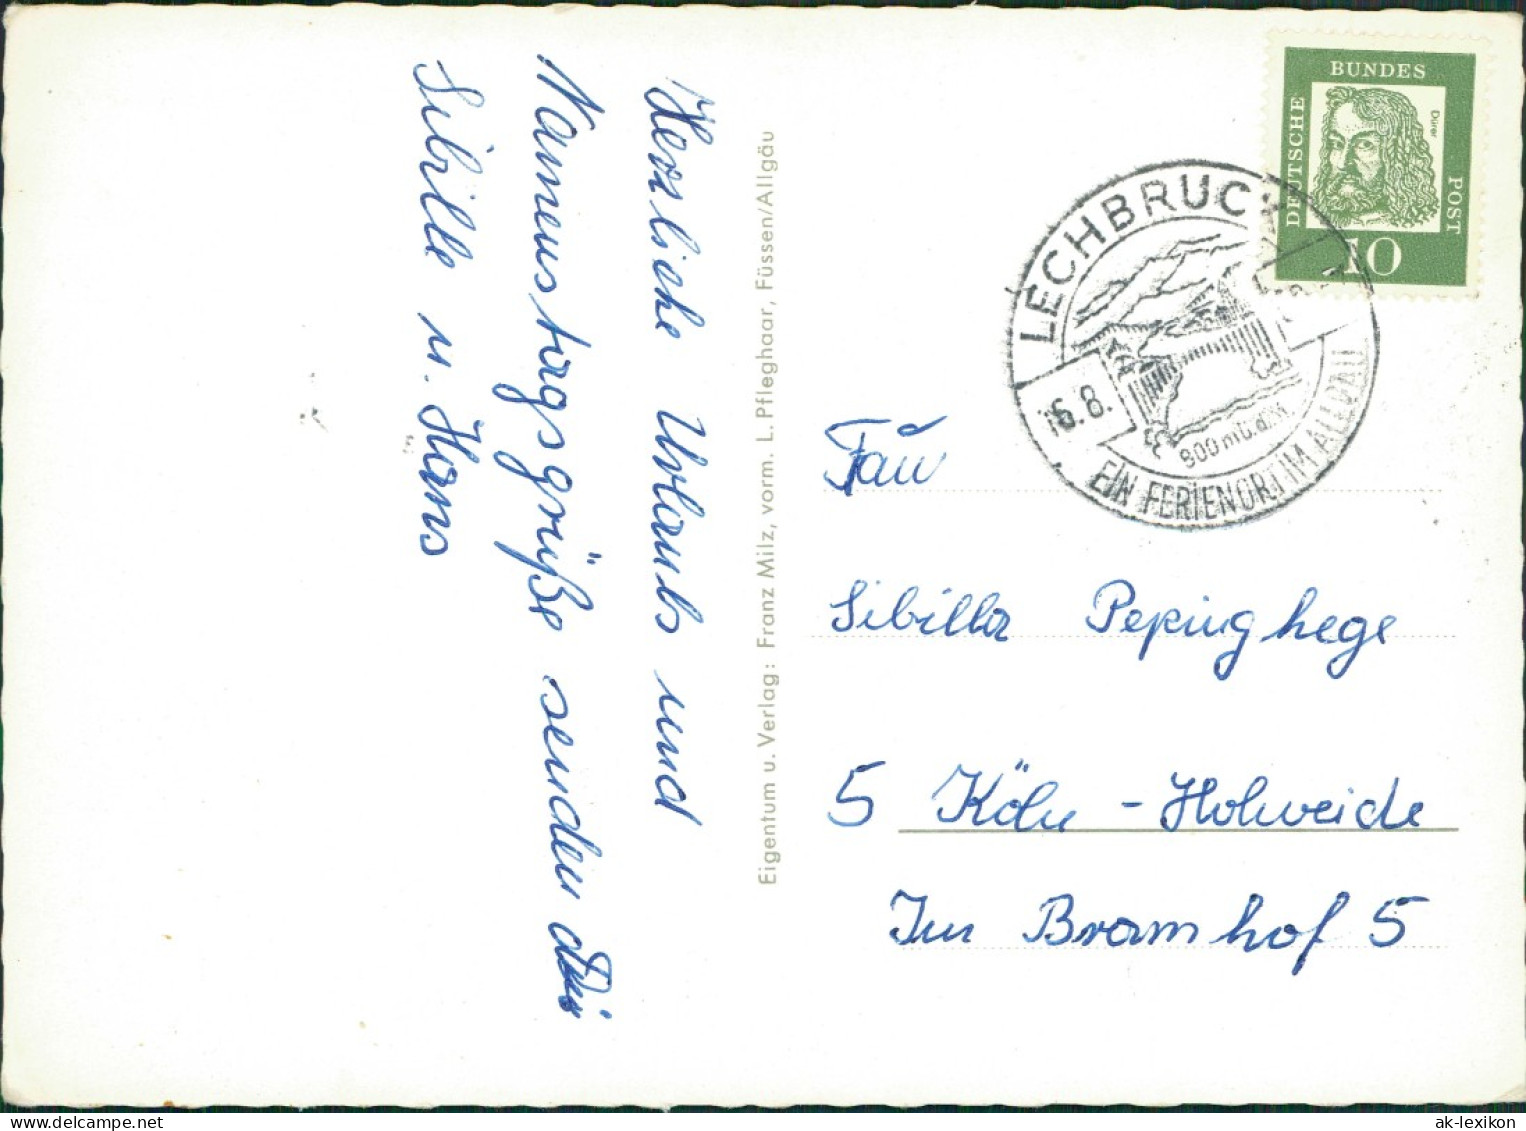 Herzliche Urlaubs und
Namenstagsgrüße senden
Sibille u. Hans
Eigentum u. Verlag: Franz Milz, vorm. L. Pfleghaar, Füssen/Allgäu
DEUTSCHE
BUNDES
POST
Dürer
10
LECHBRUCK
6.8.
900 m
EIN FERIENORT IM ALLGÄU
Fau
Sibilla Pepinghege
5 Köln - Holweide
Im Bramhof 5
ak-lexikon